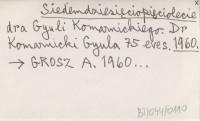 Siedemdziesięciopięciolecie
dra Gyuli Komarnickiego. Dr
Komarnicki Gyula 75 éves. 1960.
→ GROSZ A. 1960...